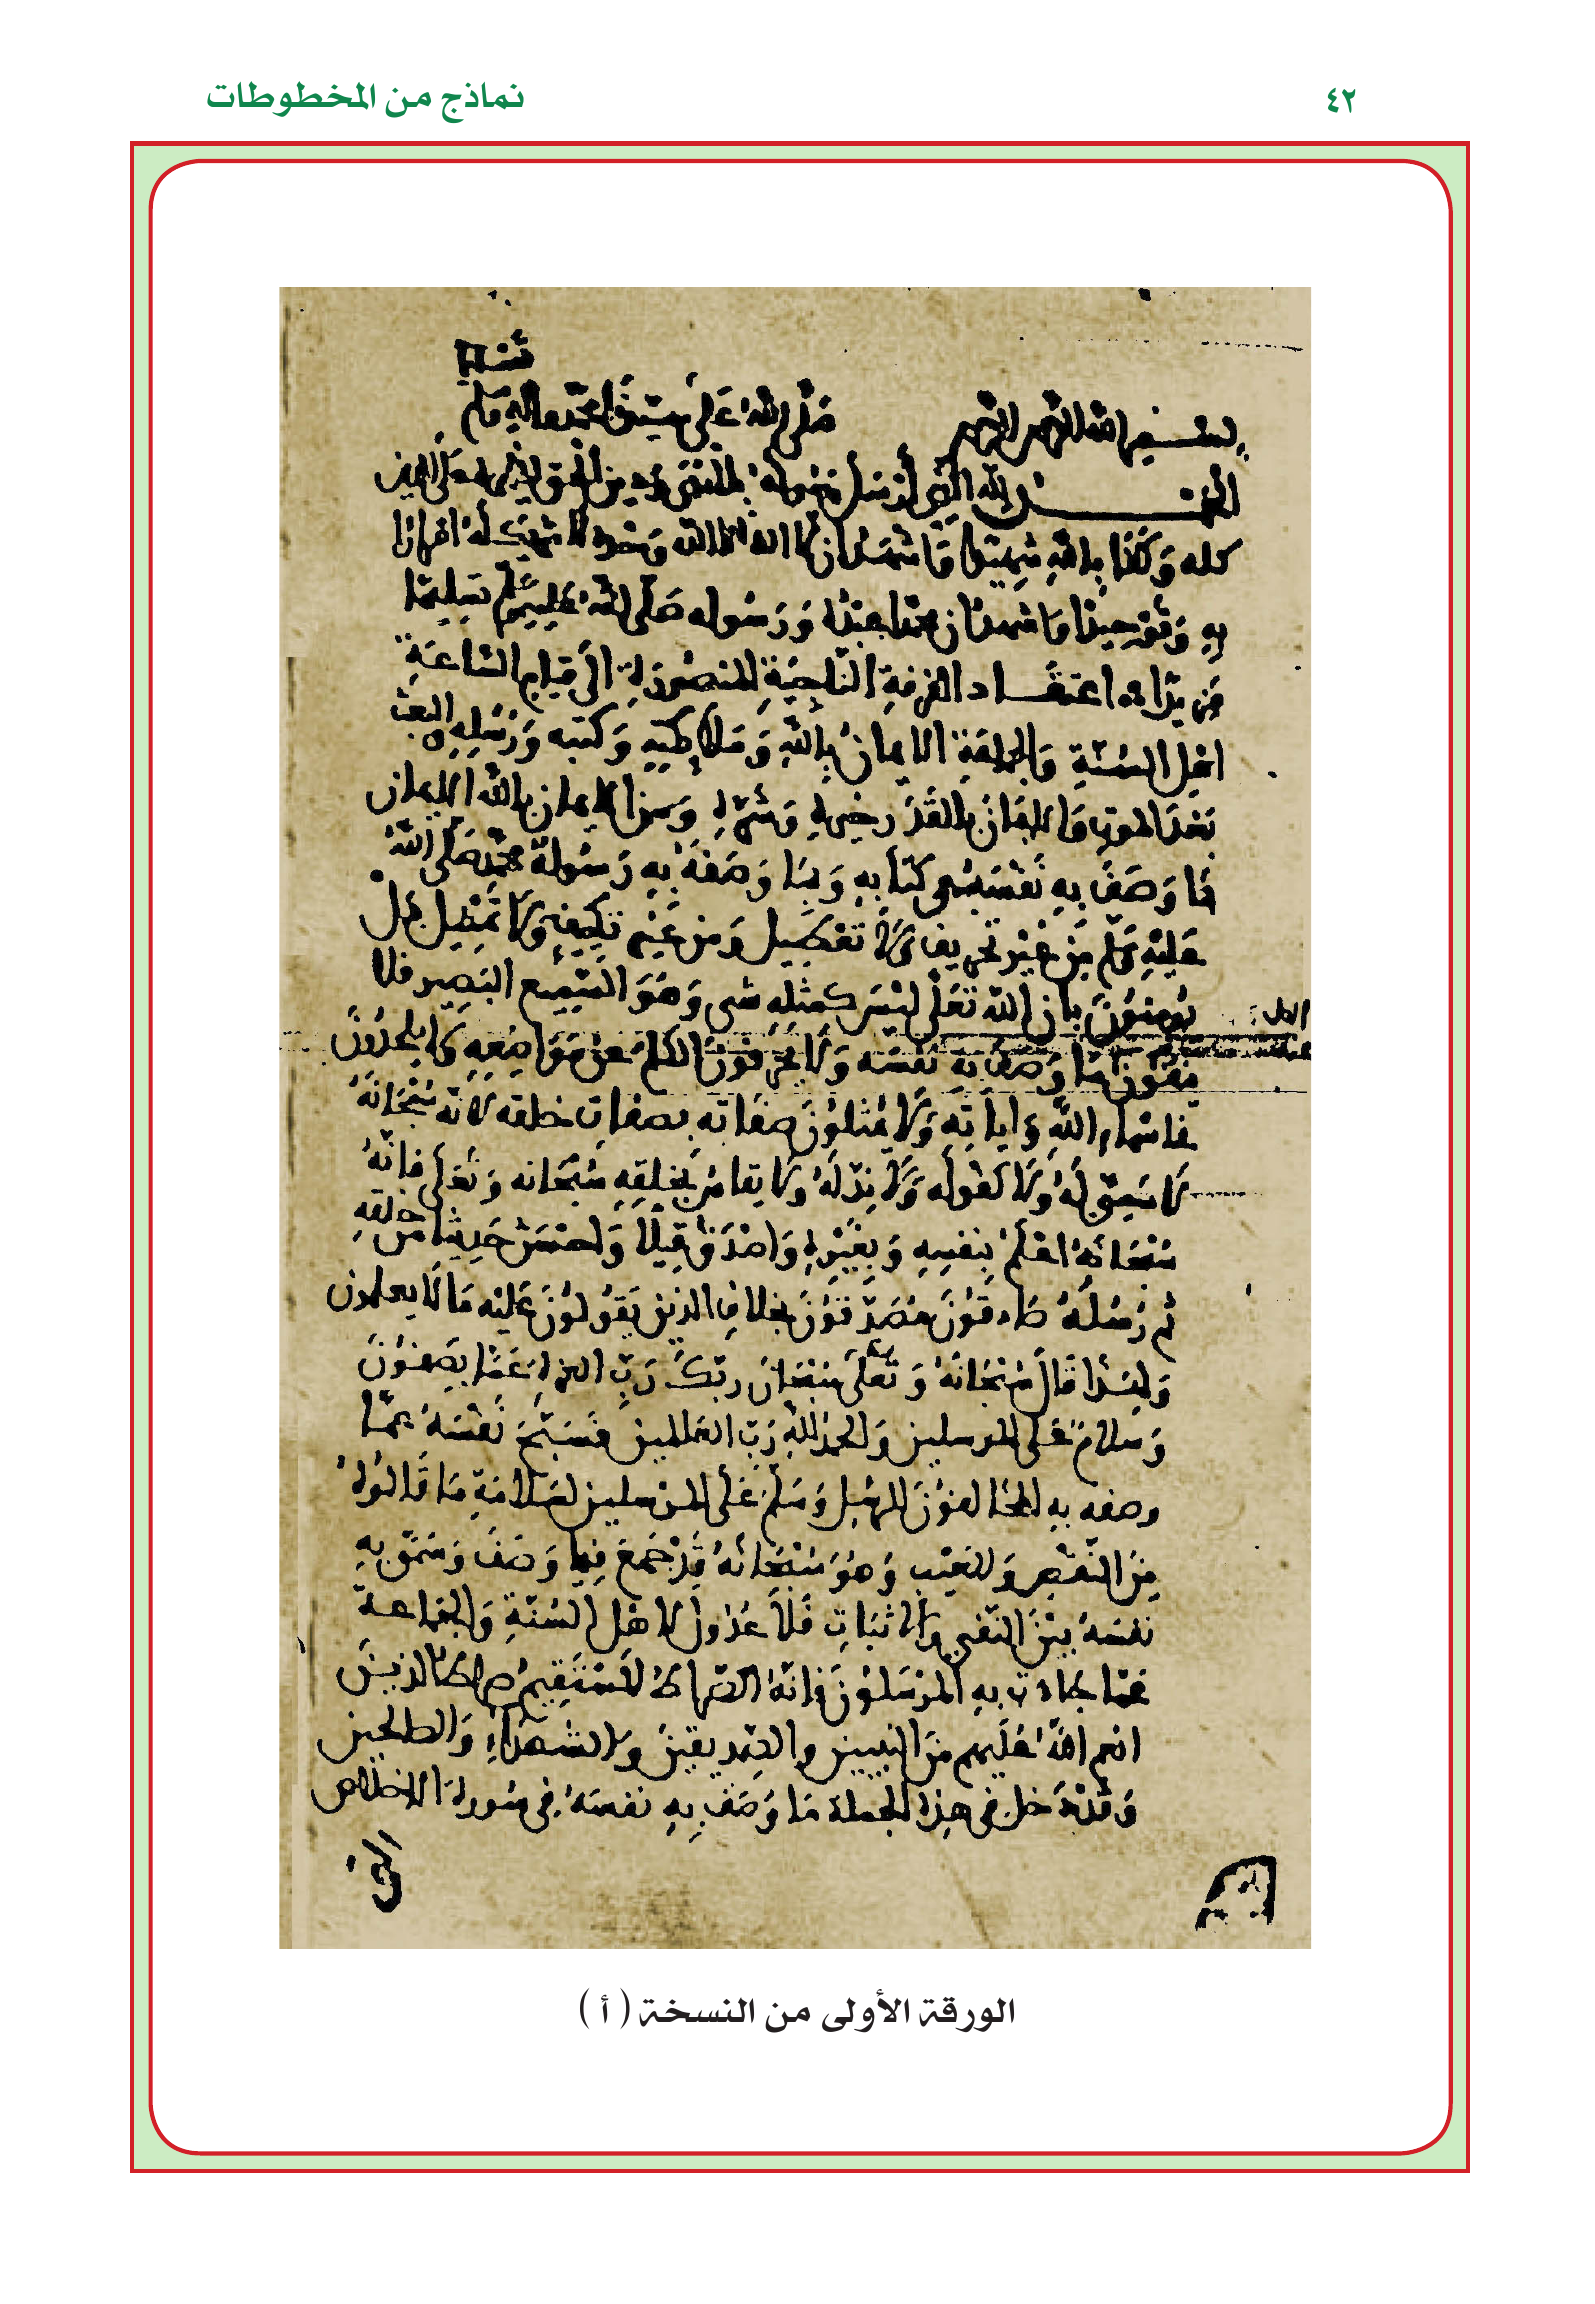 ٤٢
نماذج من المخطوطات
بسم الله الرحمن الرحيم صلى الله على سيدنا محمد واله وسلم
الحمد لله الذي أرسل رسوله بالهدى ودين الحق ليظهره على الدين
كله وكفا بالله شهيدا واشهد ان لا اله الا الله وحده لا شريك له اقرارا
به وتوحيدا واشهد ان محمدا عبده ورسوله صلى الله عليه وسلم تسليما
اعتقاد الفرقة الناجية المنصورة الى قيام الساعة
اهل السنة والجماعة الايمان بالله وملايكته وكتبه ورسله والبعث
بعد الموت والايمان بالقدر خيره وشره ومن الايمان بالله الايمان
بما وصف به نفسه في كتابه وبما وصفه به رسوله محمد صلى الله
عليه وسلم من غير تحريف ولا تعطيل ومن غير تكييف ولا تمثيل بل
يومنون بان الله تعلى ليس كمثله شي وهو السميع البصير فلا
ينفون ما وصف به نفسه ولا يحرفون الكلم عن مواضعه ولا يلحدون
في اسماء الله واياته ولا يمثلون صفاته بصفات خلقه لانه سبحانه
لا سمي له ولا كفو له ولا ند له ولا يقاس بخلقه سبحانه وتعلى فانه
سبحانه اعلم بنفسه وبغيره واصدق قيلا واحسن حديثا من خلقه
ثم رسله صادقون مصدقون بخلاف الذين يقولون عليه ما لا يعلمون
ولهذا قال سبحانه وتعلى سبحان ربك رب العزة عما يصفون
وسلام على المرسلين والحمد لله رب العالمين فسبح نفسه عما
وصفه به المخالفون للرسل وسلم على المرسلين لسلامة ما قالوه
من النقص والعيب وهو سبحانه قد جمع فيما وصف وسمى به
نفسه بين النفي والاثبات فلا عدول لاهل السنة والجماعة
عما جاءت به المرسلون فانه الصراط المستقيم صراط الذين
انعم الله عليهم من النبيين والصديقين والشهداء والصالحين
وقد دخل في هذه الجملة ما وصف به نفسه في سورة الاخلاص
الورقة الأولى من النسخة ( أ )